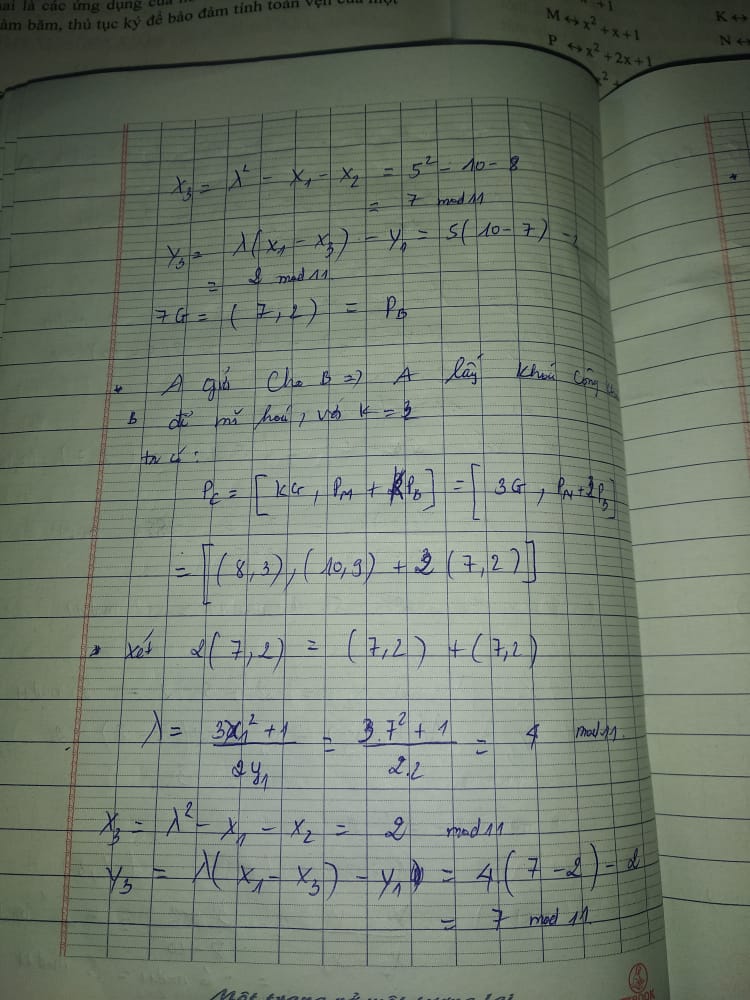 ai là các ứng dụng của
àm băm, thủ tục ký để bảo đảm tính toàn vẹn của một
x +1
M ↔ x² + x + 1
P ↔ x² + 2x + 1
x² +
K ↔
N ↔
X₃ = λ² - X₁ - X₂ = 5² - 10 - 8
= 7 mod 11
Y₃ = λ(X₁ - X₃) - Y₁ = 5(10 - 7) -
= 2 mod 11
7G = (7, 2) = P_B
* A gửi cho B => A lấy khoá công
B để mã hoá, với k = 3
ta có:
P_C = [kG, P_M + kP_B] = [3G, P_M + 3P_B]
= [(8,3), (10,9) + 3(7,2)]
* xét 2(7,2) = (7,2) + (7,2)
λ = (3X₁² + 1) / (2Y₁) = (3.7² + 1) / (2.2) = 4 mod 11
X₃ = λ² - X₁ - X₂ = 2 mod 11
Y₃ = λ(X₁ - X₃) - Y₁ = 4(7 - 2) - 2
= 7 mod 11